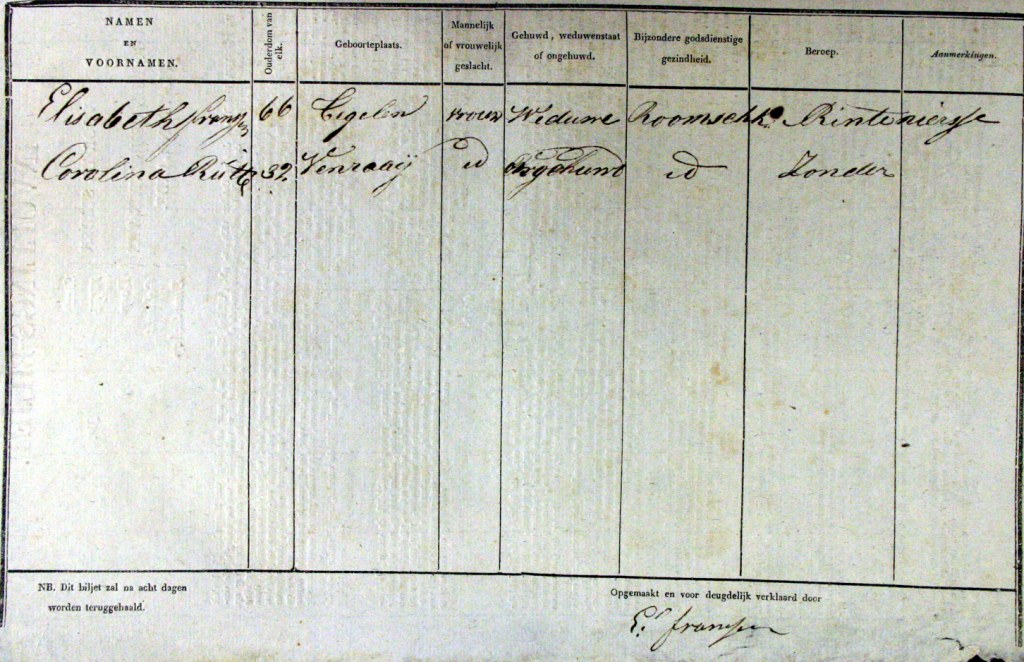 NAMEN EN VOORNAMEN. Ouderdom van elk. Geboorteplaats. Mannelijk of vrouwelijk geslacht. Gehuwd, weduwenstaat of ongehuwd. Bijzondere godsdienstige gezindheid. Beroep. Aanmerkingen.
Elisabeth fransse 66 Tegelen vrouw Weduwe Roomsch k. Rinteniersse
Carolina Rutte 32 Venraaij id Ongehuwd id Zonder
NB. Dit biljet zal na acht dagen
worden teruggehaald.
Opgemaakt en voor deugdelijk verklaard door
E. franssen